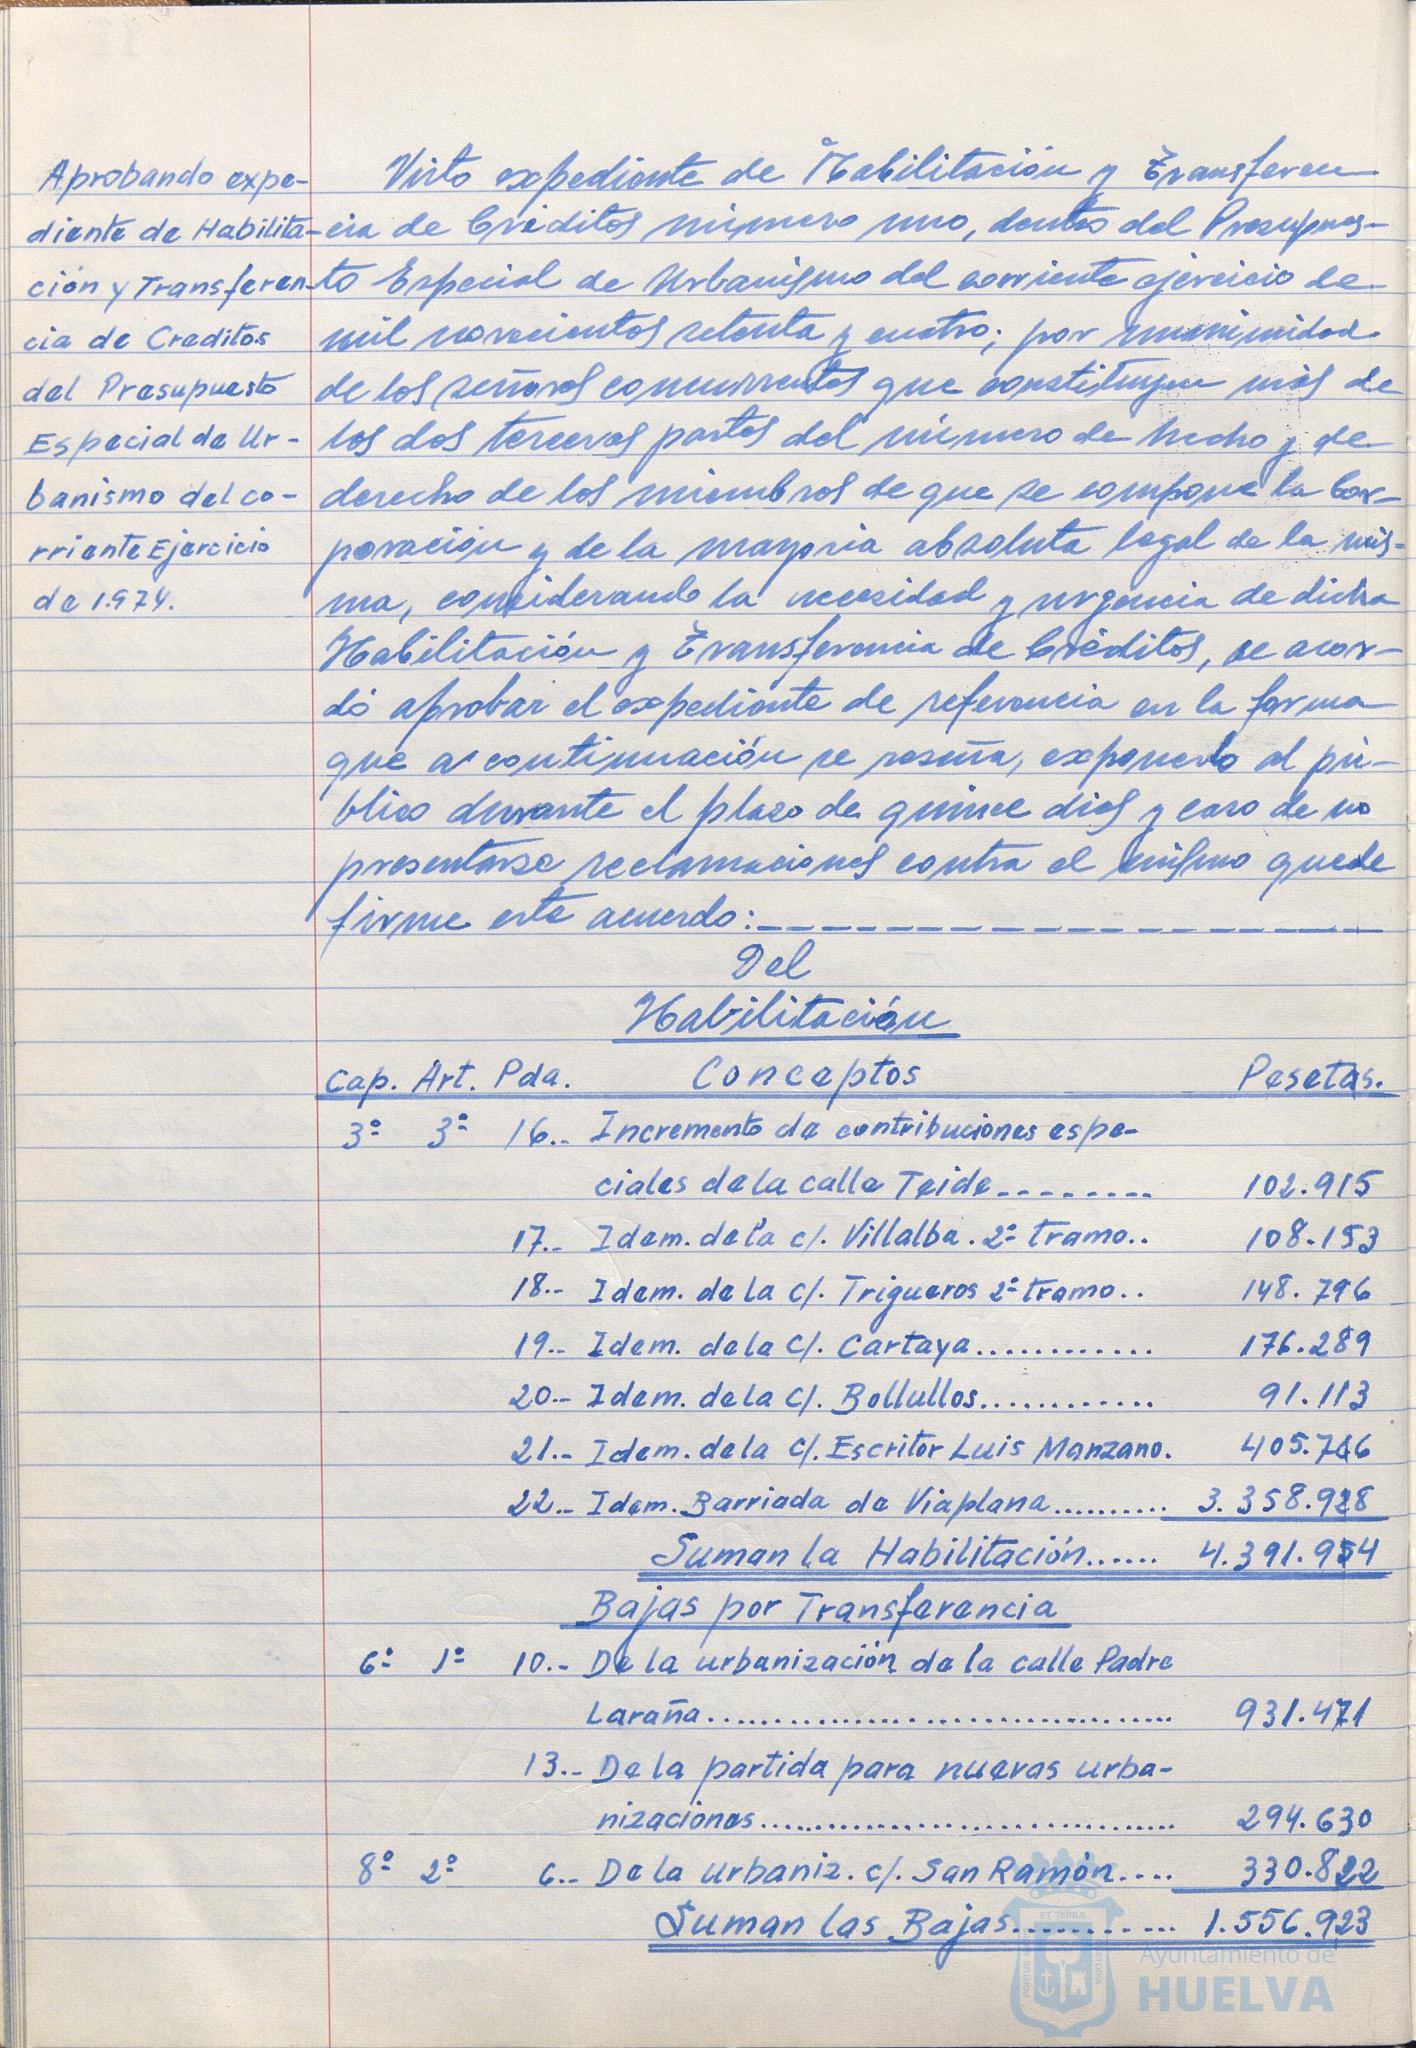 Aprobando expe-
diente de Habilita-
ción y Transferen-
cia de Creditos
del Presupuesto
Especial de Ur-
banismo del co-
rriente Ejercicio
de 1.974.
Visto expediente de Habilitación y Transferen
cia de Créditos número uno, dentro del Presupues-
to Especial de Urbanismo del corriente ejercicio de
mil novecientos setenta y cuatro; por unanimidad
de los señores concurrentes que constituyen más de
los dos terceras partes del número de hecho y de
derecho de los miembros de que se compone la Cor-
poración y de la mayoria absoluta legal de la mis-
ma, considerando la necesidad y urgencia de dicha
Habilitación y Transferencia de Créditos, se acor-
dó aprobar el expediente de referencia en la forma
que a continuación se reseña, exponerlo al pú-
blico durante el plazo de quince dias y caso de no
presentarse reclamaciones contra el mismo quede
firme este acuerdo:
Del
Habilitación
Cap. Art. Pda. Conceptos Pesetas.
3º 3º 16.- Incremento de contribuciones espe-
ciales de la calle Teide 102.915
17.- Idem. de la c/. Villalba. 2º tramo.. 108.153
18.- Idem. de la c/. Trigueros 2º tramo.. 148.796
19.- Idem. de la c/. Cartaya............ 176.289
20.- Idem. de la c/. Bollullos............ 91.113
21.- Idem. de la c/. Escritor Luis Manzano. 405.766
22.- Idem. Barriada de Viaplana.......... 3.358.928
Suman la Habilitación...... 4.391.954
Bajas por Transferencia
6º 1º 10.- De la urbanización de la calle Padre
Laraña.................................... 931.471
13.- De la partida para nuevas urba-
nizaciones................................ 294.630
8º 2º 6.- De la urbaniz. c/. San Ramón.... 330.822
Suman las Bajas............ 1.556.923
Ayuntamiento de
HUELVA